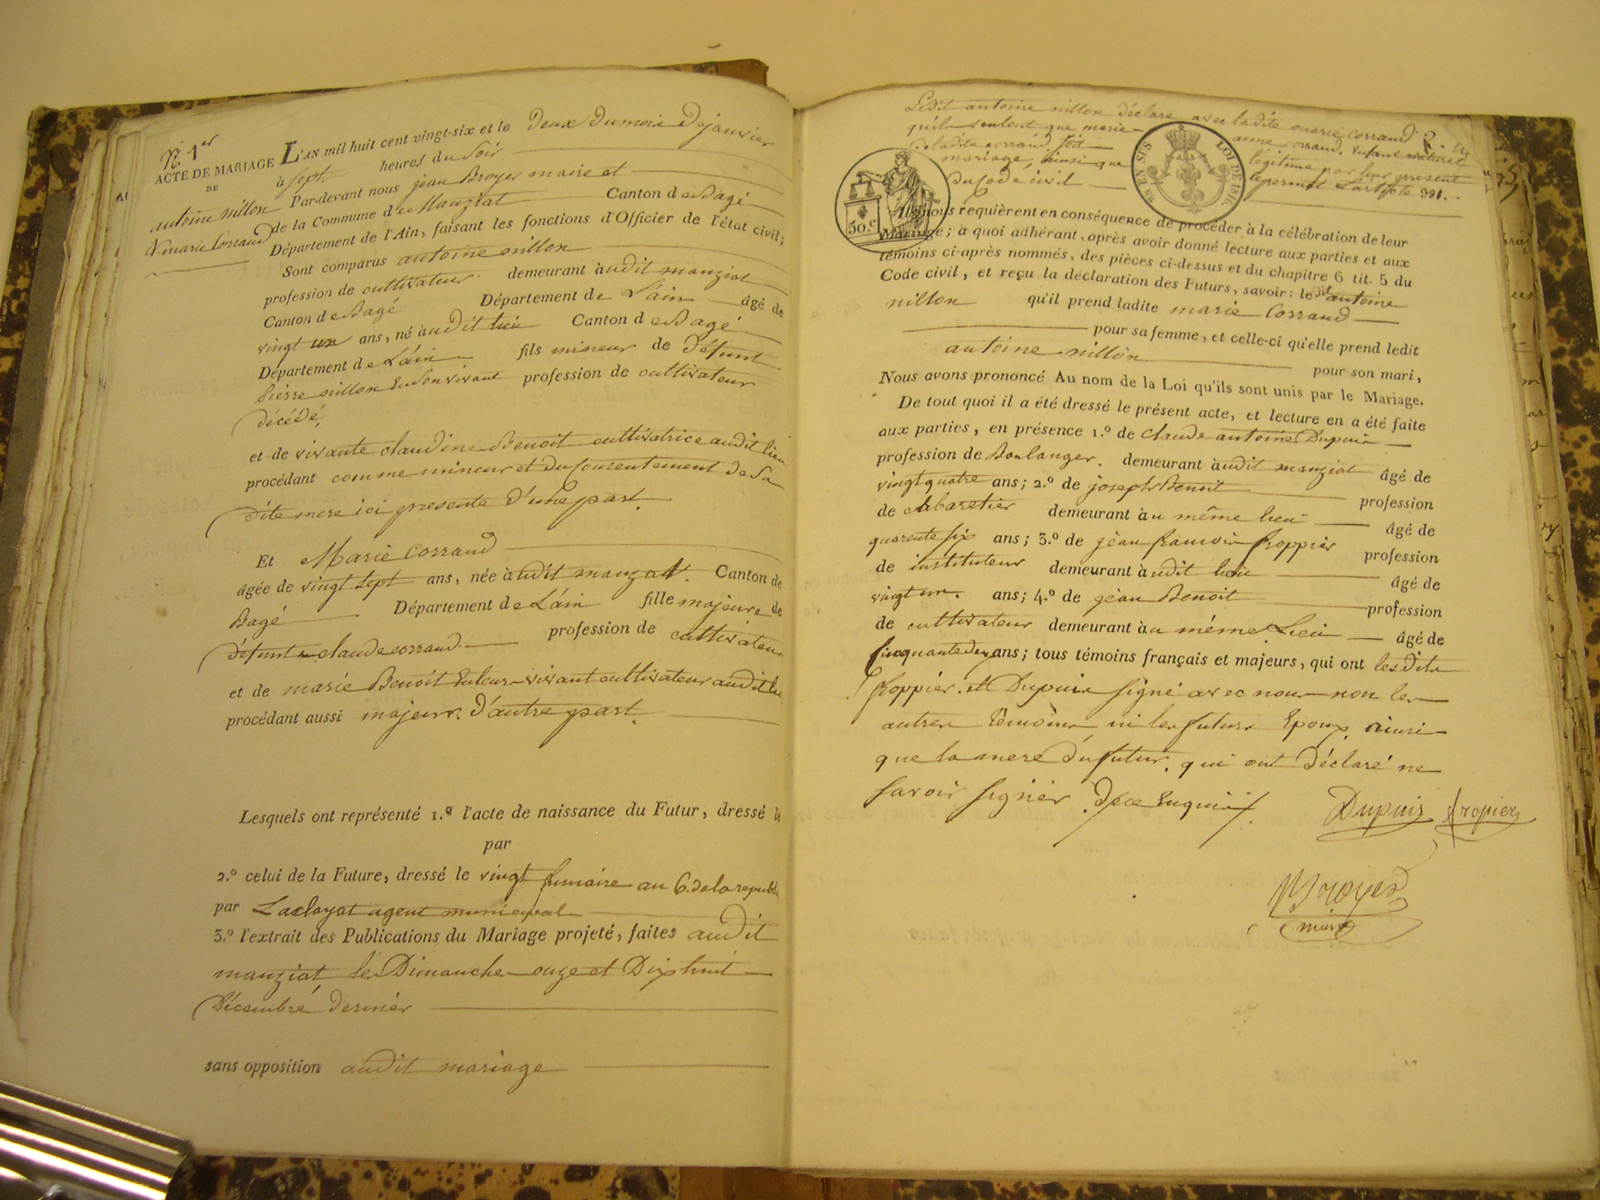 N.º 1er
ACTE DE MARIAGE
DE
antoine nillon
& marie Corraud
L'AN mil huit cent vingt-six et le deux du mois de janvier
à sept heures du soir
Par-devant nous jean Broyer maire et
de la Commune de Manziat Canton de Bagé
Département de l'Ain, faisant les fonctions d'Officier de l'état civil;
Sont comparus antoine nillon
profession de cultivateur demeurant audit manziat
Canton de Bagé Département de L'ain âgé de
vingt un ans, né audit lieu Canton de Bagé
Département de L'ain fils mineur de Défunt
pierre nillon En son vivant profession de cultivateur
décédé,
et de vivante claudine Benoit cultivatrice audit lieu
procédant comme mineur et du consentement de Sa
dite mere ici presente d'une part.
Et Marie Corraud
âgée de vingt sept ans, née audit manziat. Canton de
Bagé Département de L'ain fille majeure de
défunt claude corraud profession de cultivateur
et de marie Benoit vivant cultivateur audit lieu
procédant aussi majeure. d'autre part.
Lesquels ont représenté 1.º l'acte de naissance du Futur, dressé le
par
2.º celui de la Future, dressé le vingt frimaire an 6. de la republ
par agent municipal
3.º l'extrait des Publications du Mariage projeté, faites audit
manziat les Dimanche onze et Dix huit
Décembre dernier
sans opposition audit mariage
Ledit antoine nillon déclare avec ladite marie corraud
qu'ils veulent que marie anne corraud. Enfant naturel
de ladite corraud, soit légitime par leur present
mariage, ainsi que le permet L'article 331.
du Code civil
30.c
LOI DE 1816
Ils nous requièrent en conséquence de procéder à la célébration de leur
Mariage; à quoi adhérant, après avoir donné lecture aux parties et aux
témoins ci-après nommés, des pièces ci-dessus et du chapitre 6 tit. 5 du
Code civil, et reçu la déclaration des Futurs, savoir: ledit antoine
nillon qu'il prend ladite marie Corraud
pour sa femme, et celle-ci qu'elle prend ledit
antoine nillon pour son mari,
Nous avons prononcé Au nom de la Loi qu'ils sont unis par le Mariage.
De tout quoi il a été dressé le présent acte, et lecture en a été faite
aux parties, en présence 1.º de claude antoine Dupuis
profession de Boulanger. demeurant audit manziat âgé de
vingt quatre ans; 2.º de joseph Benoit profession
de Cabaretier demeurant au même lieu âgé de
quarente six ans; 3.º de jean francois froppier profession
de instituteur demeurant audit lieu âgé de
vingt un. ans; 4.º de jean Benoit profession
de cultivateur demeurant au même Lieu âgé de
Cinquante deux ans; tous témoins français et majeurs, qui ont lesdits
froppier et Dupuis signé avec nous non les
autres témoins ni les futurs Epoux ainsi
que la mere du futur. qui ont Déclaré ne
savoir signer de ce Enquis.
Dupuis fropier
Broyer
maire